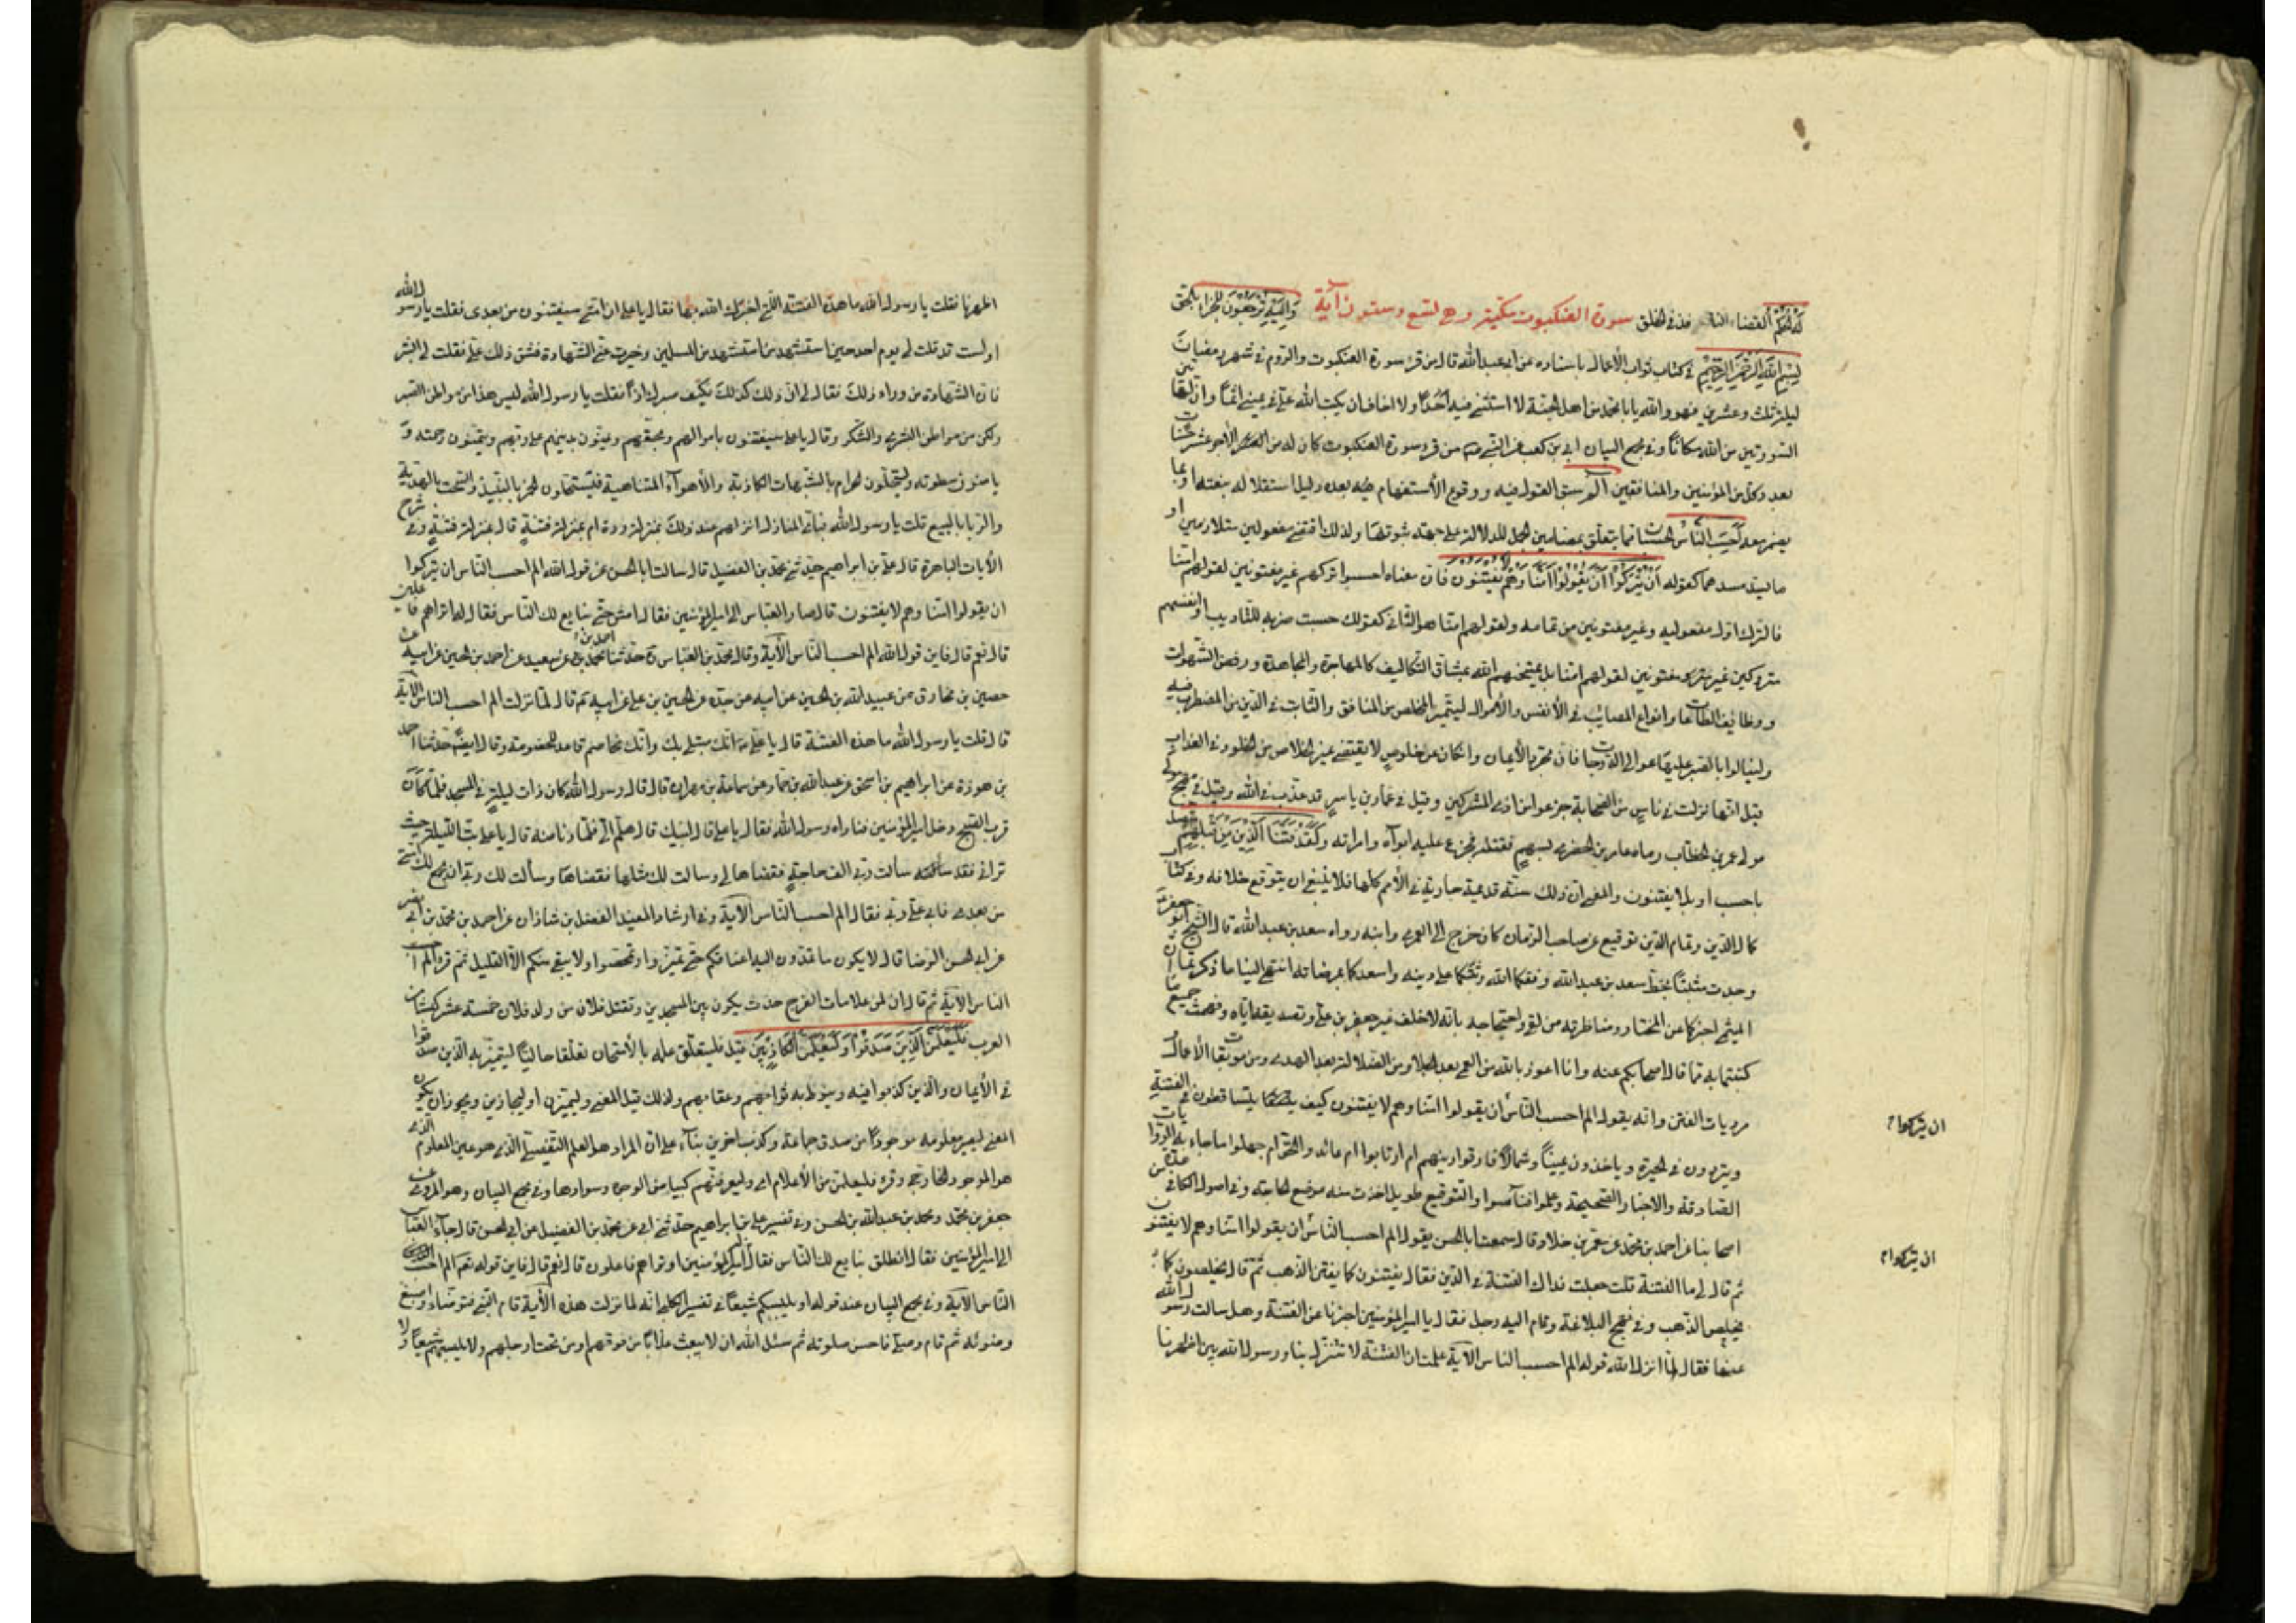 لَهُ الْحُكْمُ القضاء النافذ في الخلق وَإِلَيْهِ تُرْجَعُونَ للجزاء بالحق سورة العنكبوت مكّية وهي تسع وستون آية
بِسْمِ اللهِ الرَّحْمنِ الرَّحِيمِ في كتاب ثواب الأعمال باسناده عن ابي عبدالله قال من قرء سورة العنكبوت والروم في شهر رمضان
ليلة ثلث وعشرين فهو والله يا با محمد من اهل الجنة لا استثنى فيه احدًا ولا اخاف ان يكتب الله علي في يميني اثمًا وان لهاتين
السورتين من الله مكانًا وفي مجمع البيان ابي بن كعب عن النبي من قرء سورة العنكبوت كان له من الاجر عشر حسنات
بعدد كل من المؤمنين والمنافقين الم سبق القول فيه ووقوع الأستفهام بعده دليل استقلاله بنفسه او بما
يضمر معه أَحَسِبَ النَّاسُ الحسبان مما يتعلق بمضامين الجمل للدلالة على جهة ثبوتها ولذلك اقتضى مفعولين متلازمين او
ما يسد مسدهما كقوله أَنْ يُتْرَكُوا أَنْ يَقُولُوا آمَنَّا وَهُمْ لا يُفْتَنُونَ فان معناه احسبوا تركهم غير مفتونين لقولهم امنا
فالترك اول مفعوليه وغير مفتونين من تمامه ولقولهم امنا هو الثاني كقولك حسبت ضربه للتأديب او انفسهم
متروكين غير مفتونين لقولهم امنا بل يمتحنهم الله بمشاق التكاليف كالمهاجرة والمجاهدة ورفض الشهوات
ووظائف الطاعات وانواع المصائب في الأنفس والأموال ليتميز المخلص من المنافق والثابت في الدين من المضطرب فيه
ولينالوا بالصبر عليها عوالي الدرجات فان مجرد الأيمان وان كان عن خلوص لا يقتضي غير الخلاص من الخلود في العذاب
قيل انها نزلت في ناس من الصحابة جزعوا من اذى المشركين وقيل في عمار بن ياسر قد عذب في الله وقيل في مهجع مولى
مولى عمر بن الخطاب رماه عامر بن الحضرمي بسهم فقتله فجزع عليه ابواه وامراته وَلَقَدْ فَتَنَّا الَّذِينَ مِنْ قَبْلِهِمْ متصل
باحسب او بلا يفتنون والمعنى ان ذلك سنة قديمة جارية في الأمم كلها فلا ينبغي ان يتوقع خلافه وفي كتاب
كمال الدين وتمام النعمة توقيع عن صاحب الزمان كان خرج الى العمري وابنه رواه سعد بن عبدالله قال الشيخ ابو جعفر
وجدت مثبتًا بخط سعد بن عبدالله وفقكما الله وثبتكما على دينه واسعدكما بمرضاته انتهى الينا ما ذكرتما ان
الميثمي اخبركما عن المختار ومناظرته من لقي واحتجاجه بانه لا خلف غير جعفر بن علي وتصديقه اياه وفهمت جميع ما
كتبتما به مما قال اصحابكم عنه وانا اعوذ بالله من العمى بعد الجلا ومن الضلالة بعد الهدى ومن موبقات الأعمال
مرديات الفتن وانه يقول الم احسب الناس ان يقولوا امنا وهم لا يفتنون كيف يتساقطون في الفتنة
ان يتركوا
ويترددون في الحيرة وياخذون يمينًا وشمالًا فارقوا دينهم ام ارتابوا ام عاندوا الحق ام جهلوا ما جاءت به الروايات
الصادقة والاخبار الصحيحة وعلموا فتناسوا والتوقيع طويل اخذت منه موضع الحاجة وفي اصول الكافي عدة من
اصحابنا عن احمد بن محمد عن معمر بن خلاد قال سمعت ابا الحسن يقول الم احسب الناس ان يقولوا امنا وهم لا يفتنون
ان يتركوا
ثم قال لي ما الفتنة قلت جعلت فداك الفتنة في الدين فقال يفتنون كما يفتن الذهب ثم قال يخلصون كما
يخلص الذهب وفي نهج البلاغة وقام اليه رجل فقال يا امير المؤمنين اخبرنا عن الفتنة وهل سالت رسول الله
عنها فقال لما انزل الله قوله الم احسب الناس الآية علمت ان الفتنة لا تنزل بنا ورسول الله بين اظهرنا
اظهرنا فقلت يا رسول الله ما هذه الفتنة التي اخبرك الله بها فقال يا علي ان امتي سيفتنون من بعدى فقلت يا رسول الله
اوليس قد قلت لي يوم احد حين استشهد من استشهد من المسلمين وحيزت عني الشهادة فشق ذلك علي فقلت لي ابشر
فان الشهادة من ورائك فقال لي ان ذلك كذلك فكيف صبرك اذًا فقلت يا رسول الله ليس هذا من مواطن الصبر
ولكن من مواطن البشرى والشكر وقال يا علي سيفتنون باموالهم ويمنون بدينهم على ربهم ويتمنون رحمته و
يامنون سطوته ويستحلون حرامه بالشبهات الكاذبة والأهوآء الساهية فيستحلون الخمر بالنبيذ والسحت بالهدية
والربا بالبيع قلت يا رسول الله فبأي المنازل انزلهم عند ذلك بمنزلة ردة ام بمنزلة فتنة قال بمنزلة فتنة وفي شرح
الأيات الباهرة قال علي بن ابراهيم حدثني محمد بن الفضيل قال سالت ابا الحسن عن قول الله الم احسب الناس ان يتركوا
ان يقولوا امنا وهم لا يفتنون قال صار العباس الى امير المؤمنين فقال امش حتى نبايع لك الناس فقال له اتراهم فاعلين
قال نعم قال فاين قول الله الم احسب الناس الآية وقال محمد بن العباس حدثنا احمد بن محمد بن سعيد عن احمد بن الحسين عن ابيه عن
حصين بن مخارق عن عبيد الله بن الحسين عن ابيه عن جده عن الحسين بن علي عن ابيه قال لما نزلت الم احسب الناس الآية
قال قلت يا رسول الله ما هذه الفتنة قال يا علي انك مبتلى بك وانك مخاصم فاعد للخصومة وقال ايضًا حدثنا احمد
بن هوذة عن ابراهيم بن اسحق عن عبدالله بن حماد عن سماعة بن مهران قال قال رسول الله كان ذات ليلة في المسجد فلما كان
قرب الصبح دخل امير المؤمنين فناداه رسول الله فقال يا علي قال لبيك قال هلم الي فلما دنا منه قال يا علي بت الليلة حيث
تراني فقد سالت ربي الف حاجة فقضاها لي وسالت لك مثلها فقضاها وسألت لك ربي ان يجمع لك امتي
من بعدى فابى علي ربي فقال الم احسب الناس الآية وفي ارشاد المفيد الفضل بن شاذان عن احمد بن محمد بن ابي نصر
عن ابي الحسن الرضا قال لا يكون ما تمدون اليه اعناقكم حتى تميزوا وتمحصوا ولا يبقى منكم الا القليل ثم قرء الم احسب
الناس الآية ثم قال ان من علامات الفرج حدث يكون بين المسجدين ويقتل فلان من ولد فلان خمسة عشر كبشًا من
العرب فَلَيَعْلَمَنَّ الَّذِينَ صَدَقُوا وَلَيَعْلَمَنَّ الْكاذِبِينَ قيل فليتعلق علمه بالأمتحان تعلقا حاليًا ليتميز به الذين صدقوا
في الأيمان والذين كذبوا فيه وينوط به ثوابهم وعقابهم ولذلك قيل المعنى وليميزن او ليجازين ويجوز ان يكون
المعنى ليصير معلومه موجودًا من صدق جماعة وكذب اخرين بناء على ان المراد هو العلم التفصيلي الذى هو عين المعلوم الذى
هو الموجود الخارجي وقرء فليعلمن من الأعلام اى وليعرفنهم كبياض الوجوه وسوادها وفي مجمع البيان وهو المروى عن
جعفر بن محمد ومحمد بن عبدالله بن الحسن وفي تفسير علي بن ابراهيم حدثني ابي عن محمد بن الفضيل عن ابي الحسن قال جاء العباس
الى امير المؤمنين فقال انطلق نبايع لك الناس فقال امير المؤمنين اوتراهم فاعلون قال نعم قال فاين قوله تعم الم احسب
الناس الآية وفي مجمع البيان عند قوله او يلبسكم شيعًا في تفسير الكلبي انه لما نزلت هذه الأية قام النبي فتوضاء واسبغ
وضوئه ثم قام وصلى فاحسن صلوته ثم سئل الله ان لا يبعث عذابًا من فوقهم او من تحت ارجلهم ولا يلبسهم شيعًا ولا